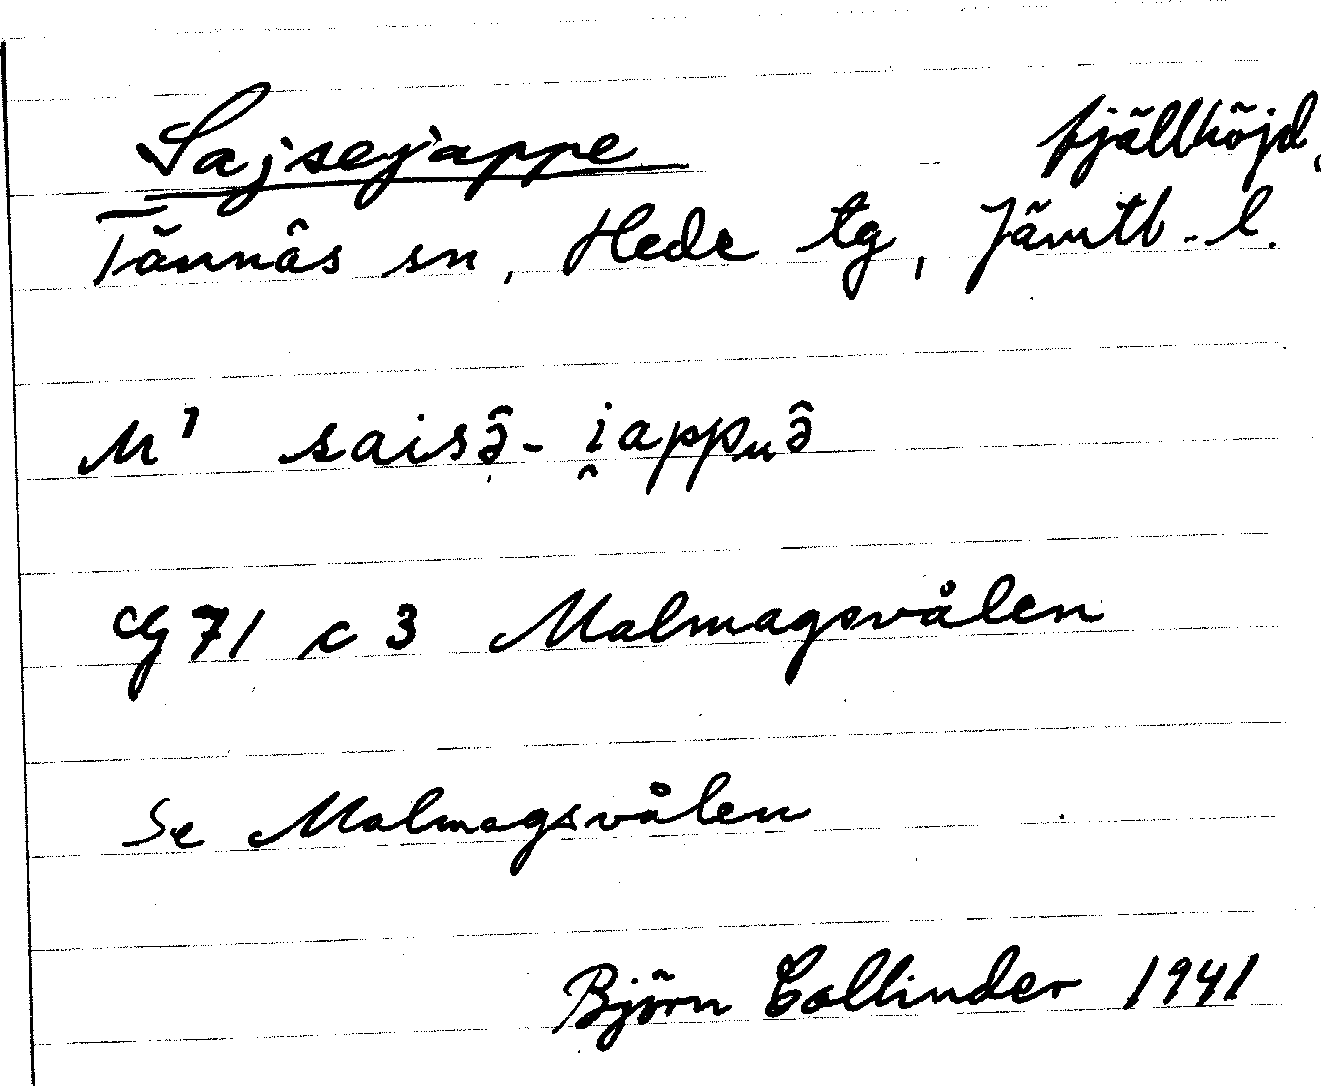 Sajsejappe fjällhöjd,
Tännäs sn, Hede tg, Jämtl. l.
M¹ saisə̂- i̯appᵤə̂
G 71 c 3 Malmagsvålen
Se Malmagsvålen
Björn Collinder 1941